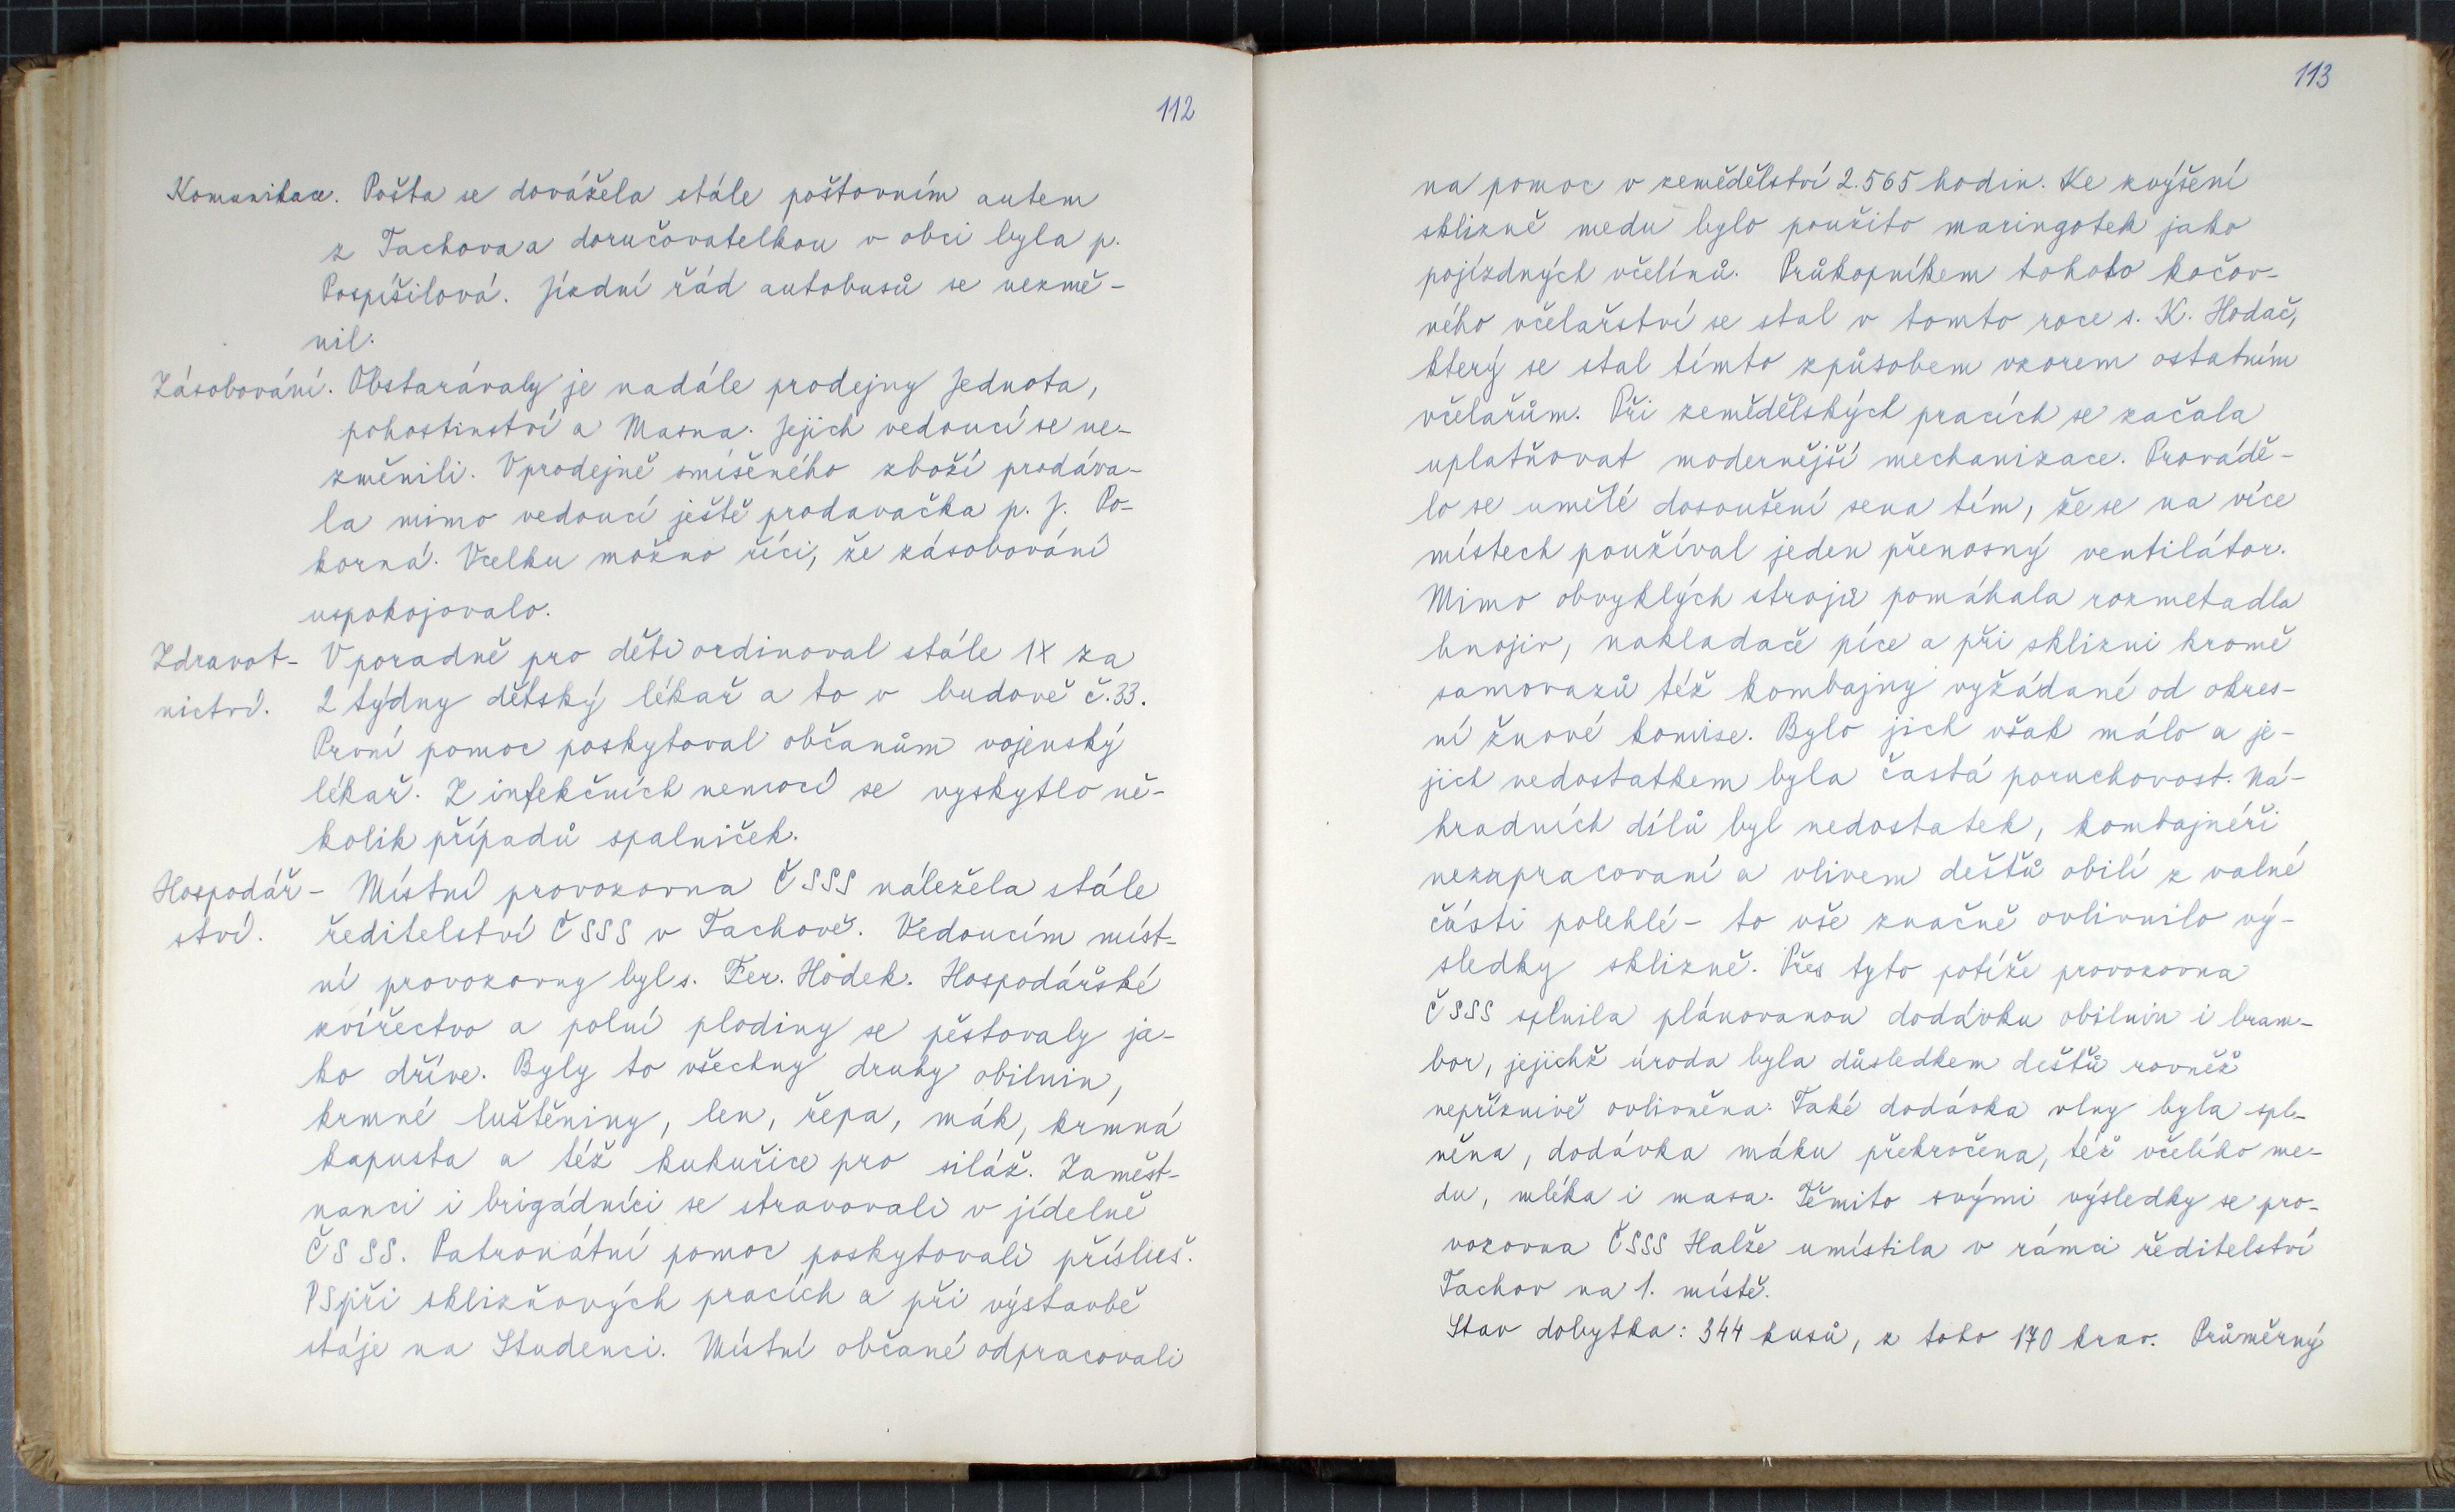 112
Komunikace. Pošta se dovážela stále poštovním autem
z Tachova a doručovatelkou v obci byla p.
Pospíšilová. Jízdní řád autobusů se nezmě-
nil.
Zásobování. Obstarávaly je nadále prodejny Jednota,
pohostinství a Masna. Jejich vedoucí se ne-
změnili. V prodejně smíšeného zboží prodáva-
la mimo vedoucí ještě prodavačka p. J. Po-
korná. Vcelku možno říci, že zásobování
uspokojovalo.
Zdravot- V poradně pro děti ordinoval stále 1x za
nictví. 2 týdny dětský lékař a to v budově č. 33.
První pomoc poskytoval občanům vojenský
lékař. Z infekčních nemocí se vyskytlo ně-
kolik případů spalniček.
Hospodář- Místní provozovna ČSSS náležela stále
ství. ředitelství ČSSS v Tachově. Vedoucím míst-
ní provozovny byl s. Fer. Hodek. Hospodářské
zvířectvo a polní plodiny se pěstovaly ja-
ko dříve. Byly to všechny druhy obilnin,
krmné luštěniny, len, řepa, mák, krmná
kapusta a též kukuřice pro siláž. Zaměst-
nanci i brigádníci se stravovali v jídelně
ČSSS. Patronátní pomoc poskytovali přísluš.
PS při sklizňových pracích a při výstavbě
stáje na Studenci. Místní občané odpracovali
113
na pomoc v zemědělství 2.565 hodin. Ke zvýšení
sklizně medu bylo použito maringotek jako
pojízdných včelínů. Průkopníkem tohoto kočov-
ného včelařství se stal v tomto roce s. K. Hodač,
který se stal tímto způsobem vzorem ostatním
včelařům. Při zemědělských pracích se začala
uplatňovat modernější mechanizace. Provádě-
lo se umělé dosoušení sena tím, že se na více
místech používal jeden přenosný ventilátor.
Mimo obvyklých strojů pomáhala rozmetadla
hnojiv, nakladače píce a při sklizni kromě
samovazů též kombajny vyžádané od okres-
ní žňové komise. Bylo jich však málo a je-
jich nedostatkem byla častá poruchovost. Ná-
hradních dílů byl nedostatek, kombajnéři
nezapracovaní a vlivem dešťů obilí z valné
části polehlé - to vše značně ovlivnilo vý-
sledky sklizně. Přes tyto potíže provozovna
ČSSS splnila plánovanou dodávku obilnin i bram-
bor, jejichž úroda byla důsledkem dešťů rovněž
nepříznivě ovlivněna. Také dodávka vlny byla spl-
něna, dodávka máku překročena, též včelího me-
du, mléka i masa. Těmito svými výsledky se pro-
vozovna ČSSS Halže umístila v rámci ředitelství
Tachov na 1. místě.
Stav dobytka: 344 kusů, z toho 170 krav. Průměrný